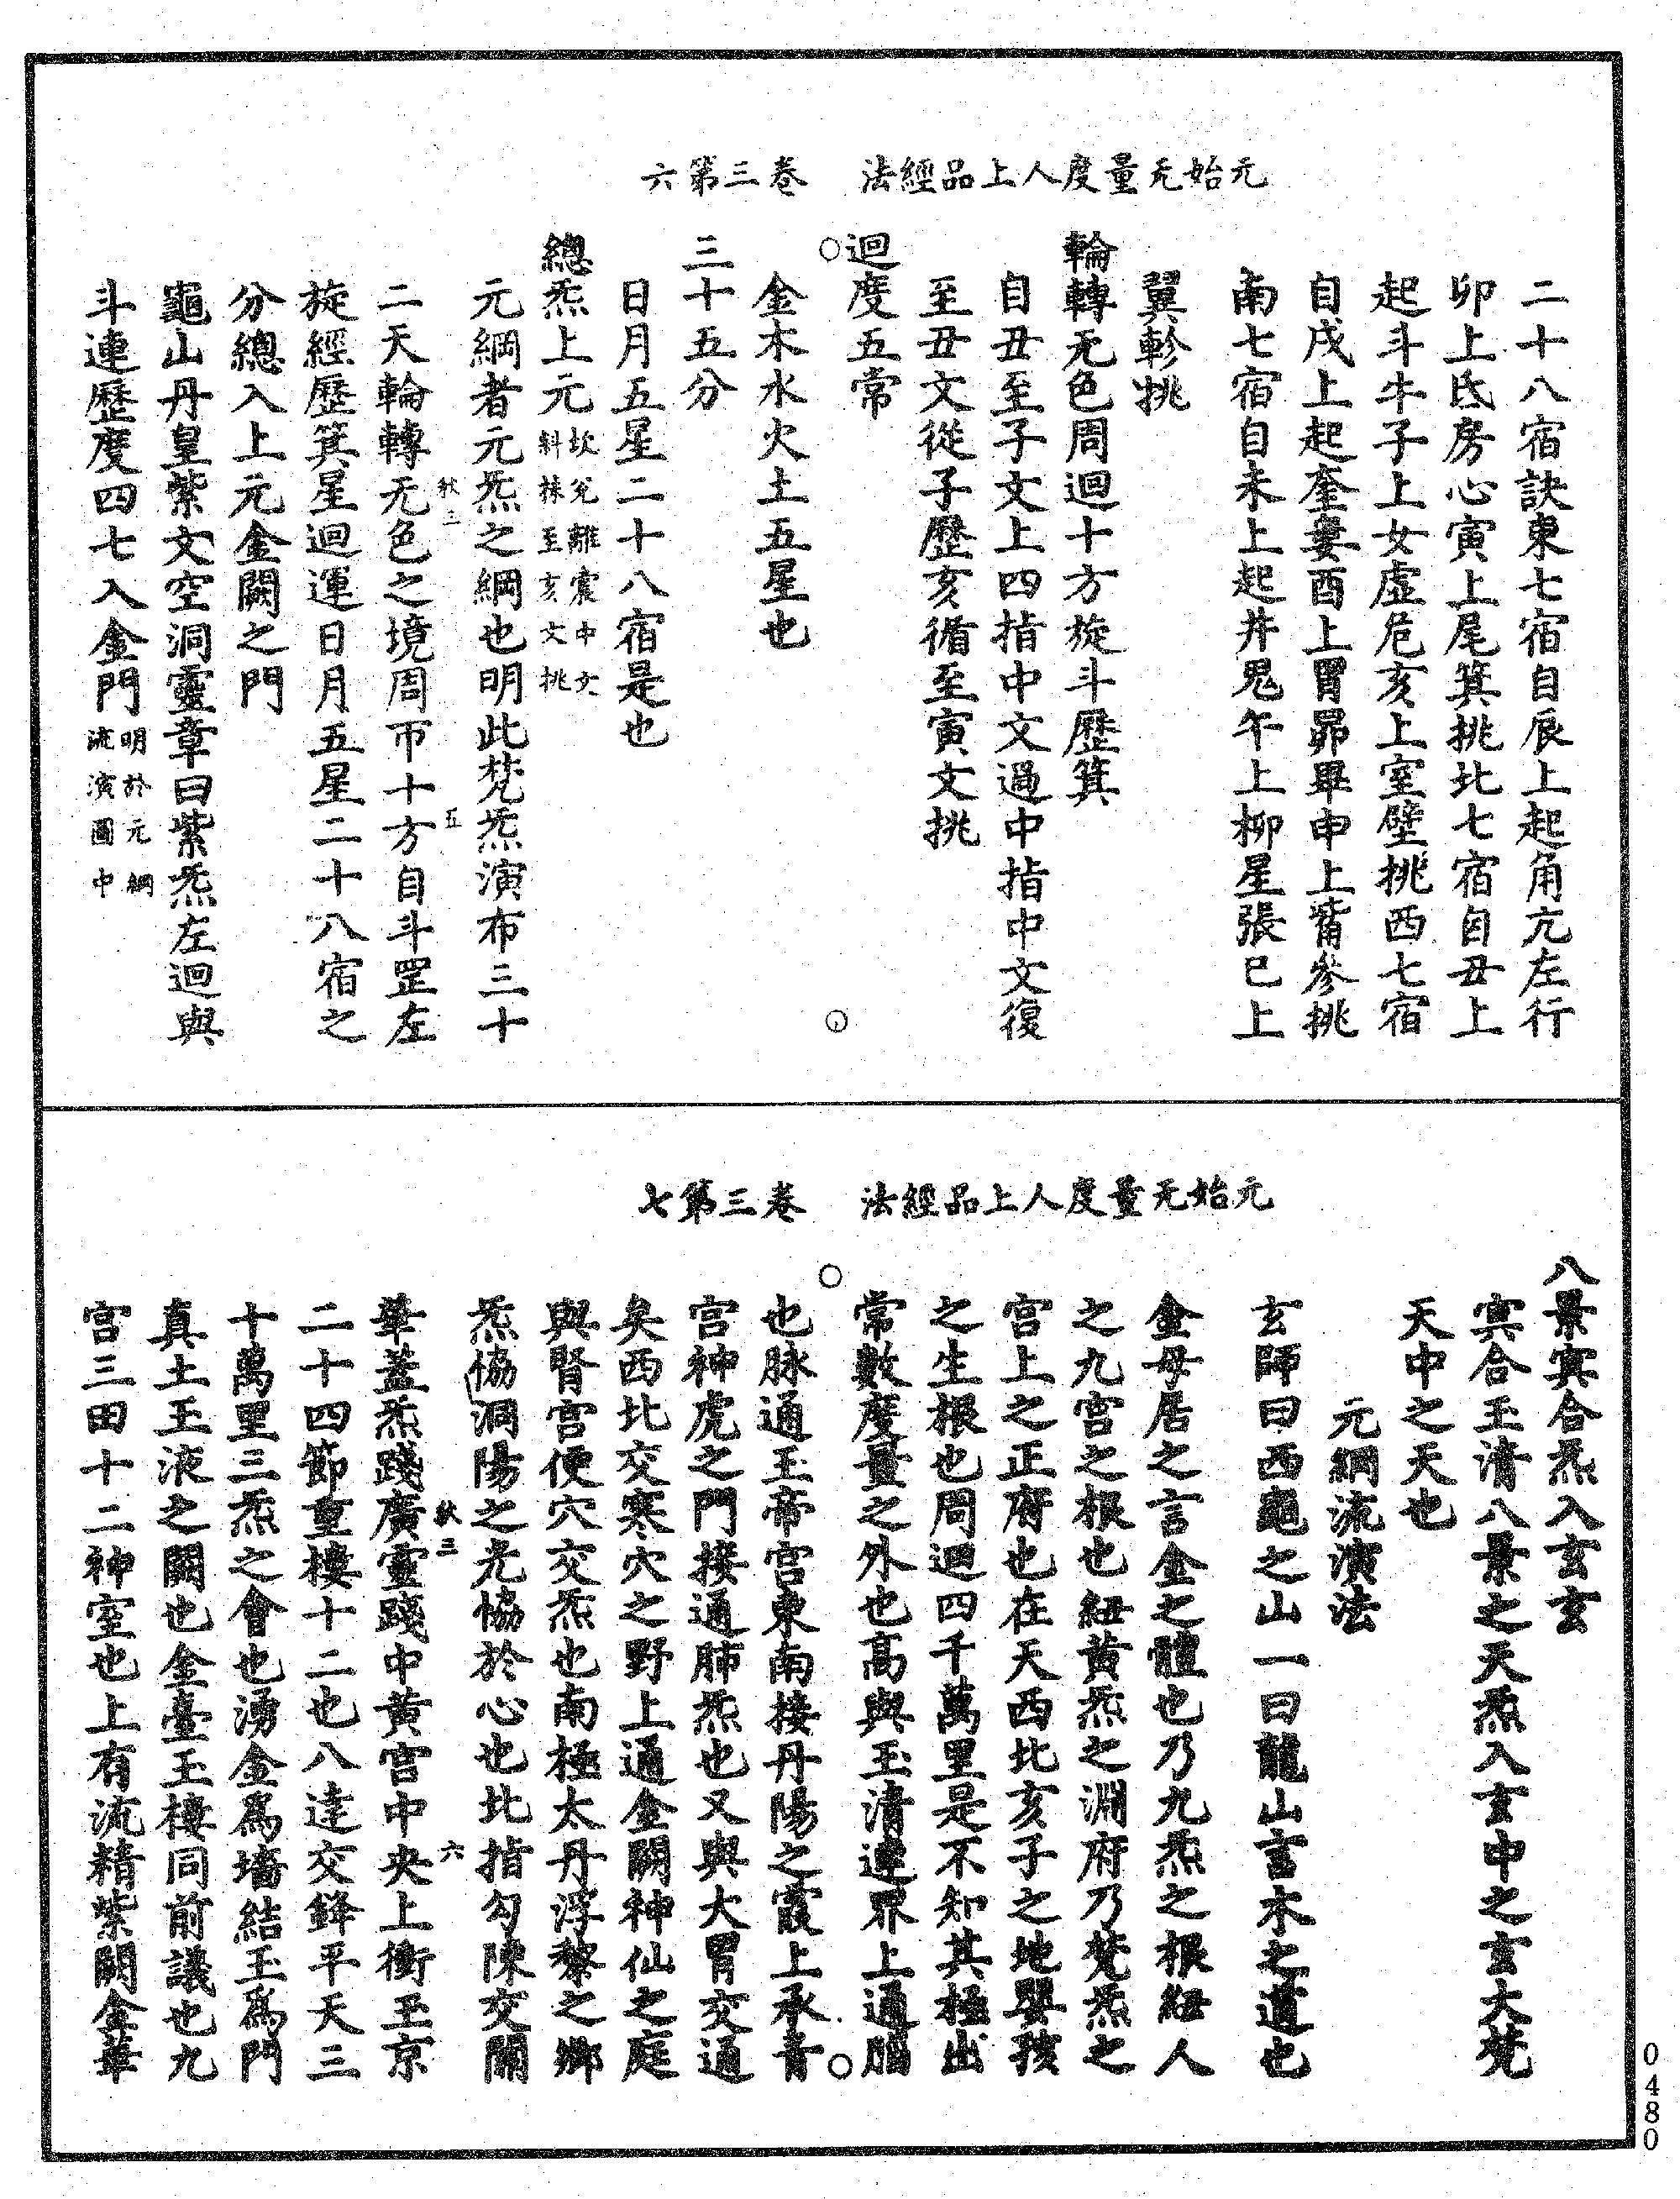 元始无量度人上品經法　卷三第六
二十八宿訣東七宿自辰上起角亢左行
卯上氐房心寅上尾箕挑北七宿自丑上
起斗牛子上女虛危亥上室壁挑西七宿
自戌上起奎婁酉上胃昴畢申上觜參挑
南七宿自未上起井鬼午上柳星張巳上
翼軫挑
輪轉无色周迴十方旋斗歷箕
自丑至子文上四指中文過中指中文復
至丑文從子歷亥循至寅文挑
迴度五常
金木水火土五星也
三十五分
日月五星二十八宿是也
總炁上元坎兌離震中文斜抹至亥文挑
元綱者元炁之綱也明此梵炁演布三十
二天輪轉无色之境周帀十方自斗罡左
旋經歷箕星迴運日月五星二十八宿之
分總入上元金闕之門
龜山丹皇紫文空洞靈章曰紫炁左迴與
斗連歷度四七入金門明於元綱流演圖中
元始无量度人上品經法　卷三第七
八景冥合炁入玄玄
冥合玉清八景之天炁入玄中之玄大梵
天中之天也
元綱流演法
玄師曰西龜之山一曰龍山言木之道也
金母居之言金之體也乃九炁之根紐人
之九宮之根也紐黃炁之淵府乃梵炁之
宮上之正府也在天西北亥子之地嬰孩
之生根也周迴四千萬里是不知其極出
常數度量之外也高與玉清連界上通腦
也脉通玉帝宮東南接丹陽之霞上承青
宮神虎之門接通肺炁也又與大胃交通
矣西北交寒穴之野上通金闕神仙之庭
與腎宮便穴交炁也南極太丹浮黎之鄉
炁恊洞陽之光恊於心也北指勾陳交關
華蓋炁踐廣靈踐中黃宮中央上衝玉京
二十四節重樓十二也八達交鋒平天三
十萬里三炁之會也湧金爲墻結玉爲門
真土王液之闕也金臺玉樓同前議也九
宮三田十二神室也上有流精紫闕金華
0480